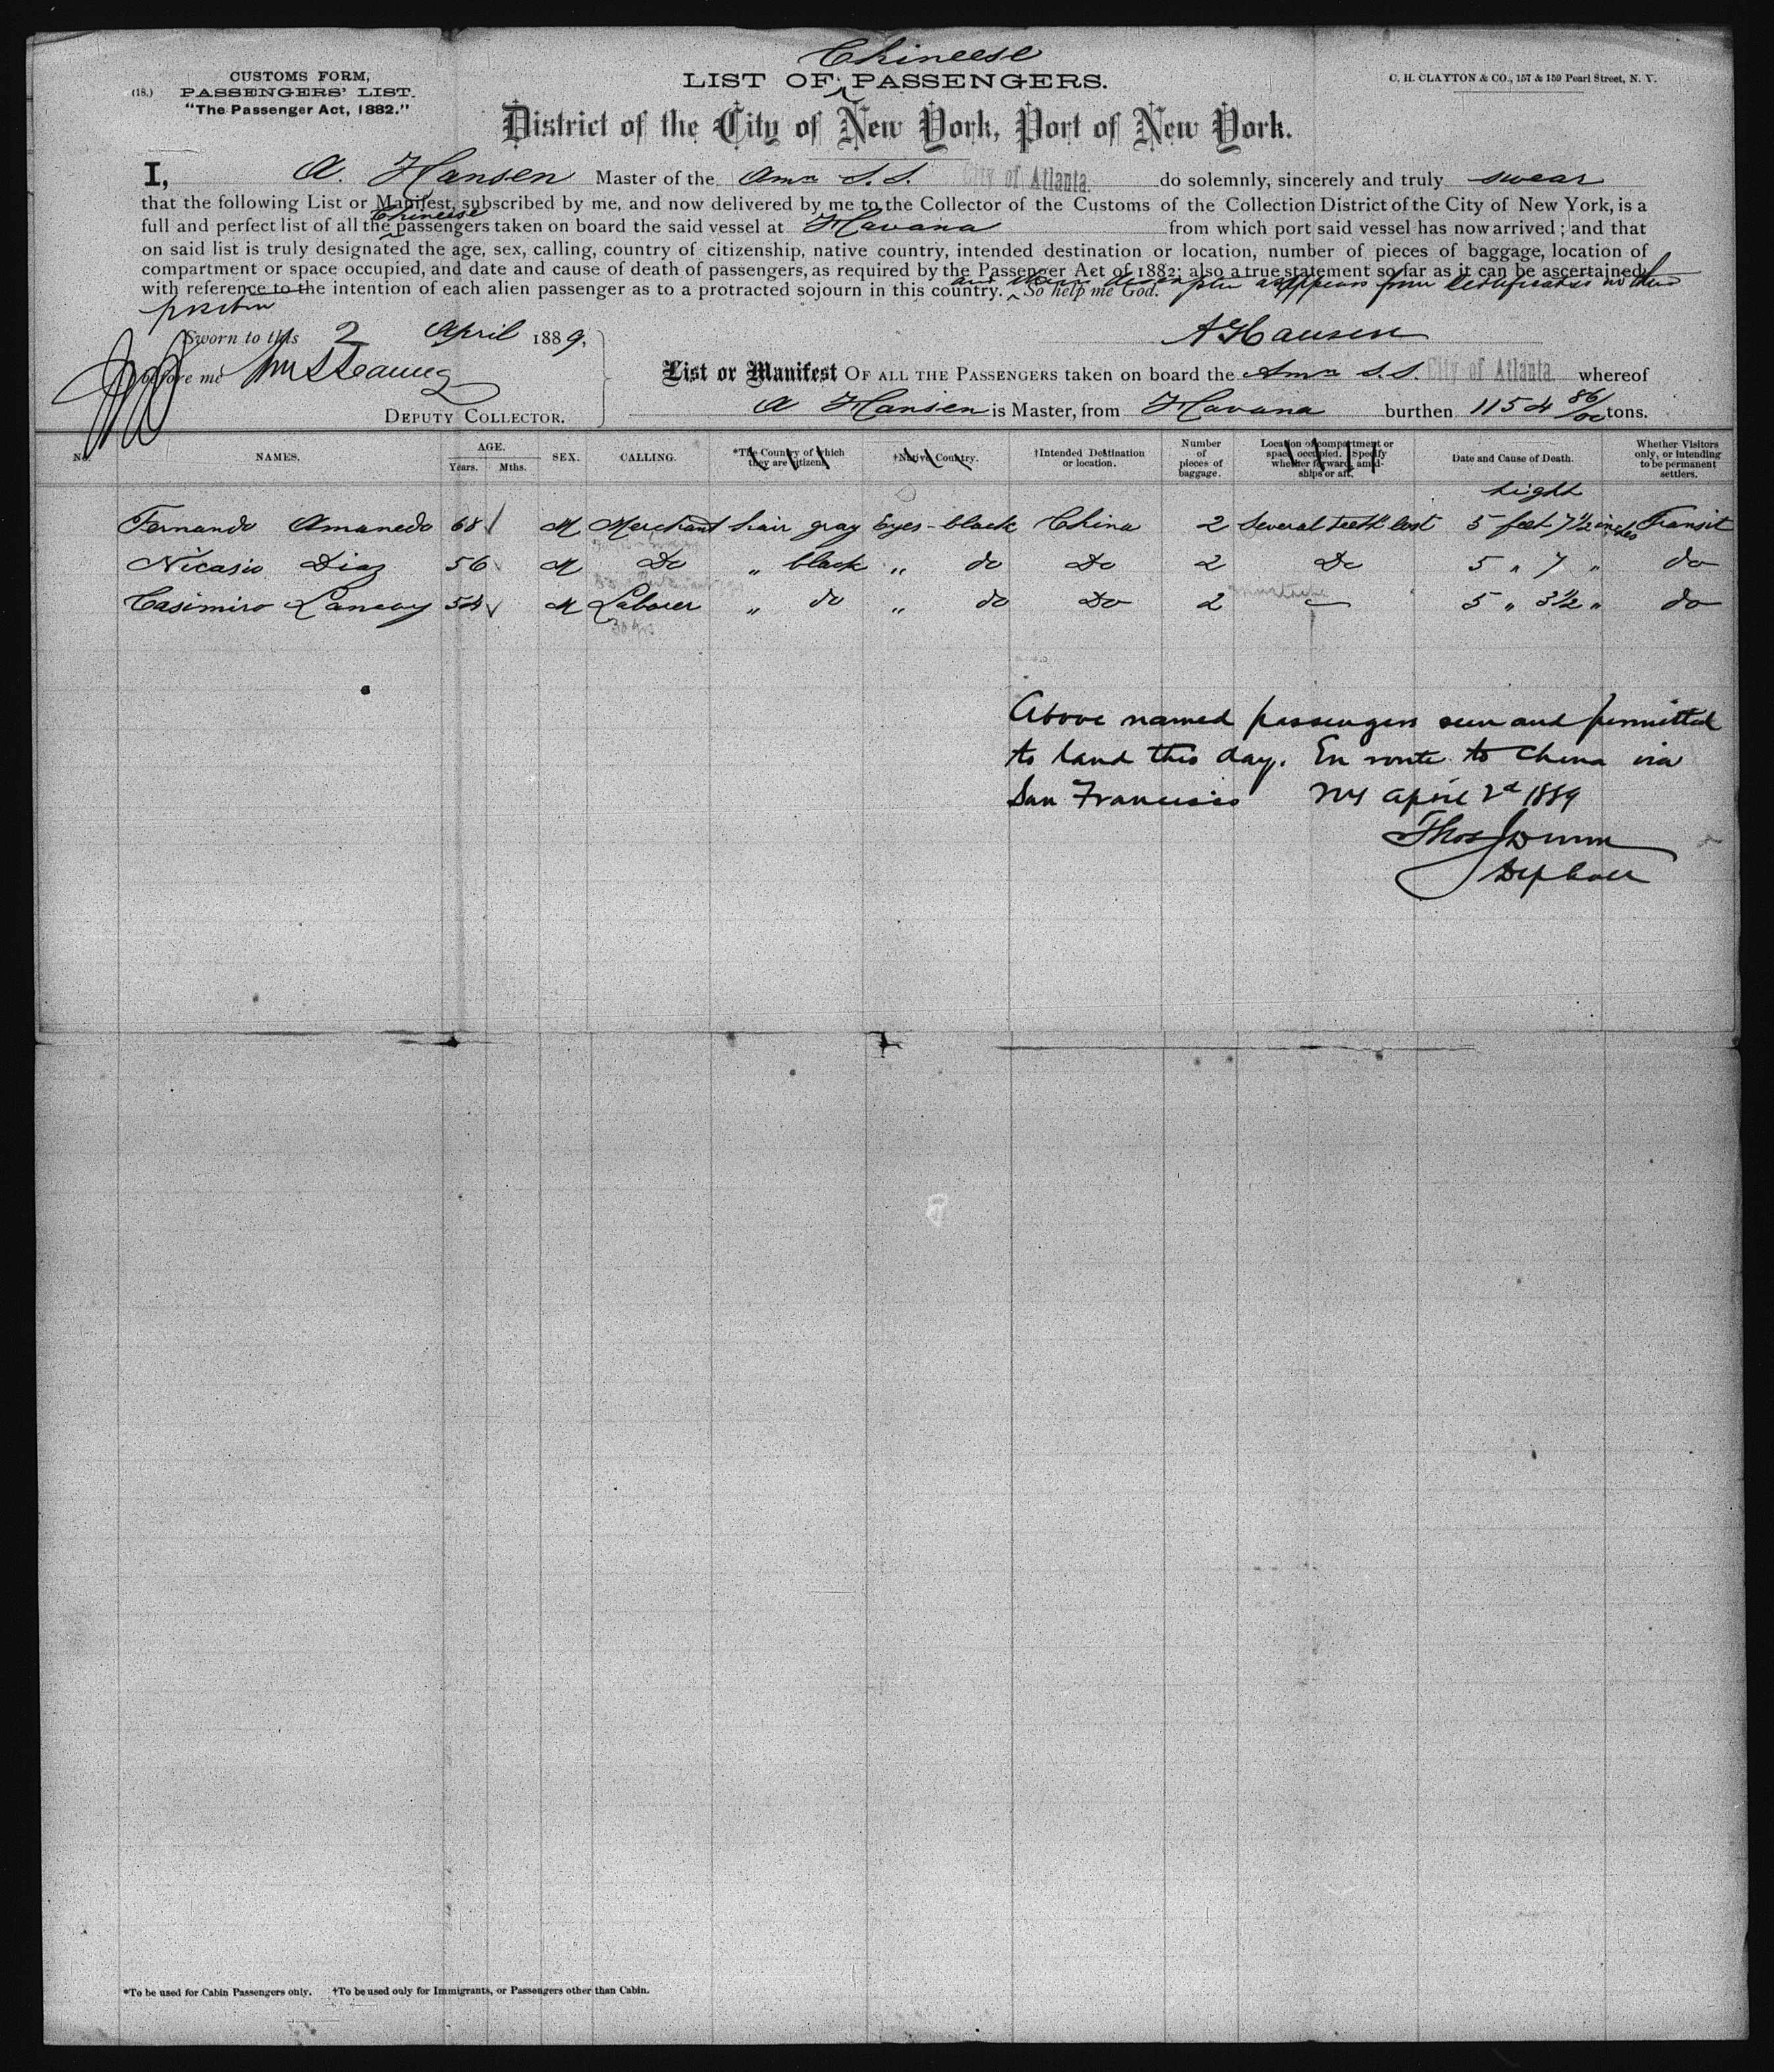 Chineese
CUSTOMS FORM,
(18.) PASSENGERS' LIST.
"The Passenger Act, 1882."
LIST OF PASSENGERS.
C. H. CLAYTON & CO., 157 & 159 Pearl Street, N. Y.
District of the City of New York, Port of New York.
I, A. Hansen Master of the Amn S.S. City of Atlanta. do solemnly, sincerely and truly swear
that the following List or Manifest, subscribed by me, and now delivered by me to the Collector of the Customs of the Collection District of the City of New York, is a
full and perfect list of all the Chineese passengers taken on board the said vessel at Havana from which port said vessel has now arrived; and that
on said list is truly designated the age, sex, calling, country of citizenship, native country, intended destination or location, number of pieces of baggage, location of
compartment or space occupied, and date and cause of death of passengers, as required by the Passenger Act of 1882; also a true statement so far as it can be ascertained
with reference to the intention of each alien passenger as to a protracted sojourn in this country. and their description as appears from certificates in their So help me God.
Sworn to this 2 April 1889,
A Hansen
before me
DEPUTY COLLECTOR.
List or Manifest OF ALL THE PASSENGERS taken on board the Amn S.S. City of Atlanta whereof
A Hansen is Master, from Havana burthen 1154 86/00 tons.
No. NAMES. AGE. Years. Mths. SEX. CALLING. *The Country of which they are citizens. †Native Country. †Intended Destination or location. Number of pieces of baggage. Location of compartment or space occupied. Specify whether forward, amidships or aft. Date and Cause of Death. Whether Visitors only, or intending to be permanent settlers.
hight
Fernando Amanedo 68 M Merchant hair gray Eyes - black China 2 Several teeth lost 5 feet 7 1/2 inches Transit
Nicasio Diaz 56 M Do " black " do Do 2 Do 5 " 7 " do
Casimiro 54 M Laborer " do " do Do 2 — 5 " 3 1/2 " do
mustache
30 yrs
Above named passengers seen and permitted
to land this day. En route to China via
San Francisco NY April 2d 1889
Thos J Dunn
Dep Coll
*To be used for Cabin Passengers only. †To be used only for Immigrants, or Passengers other than Cabin.